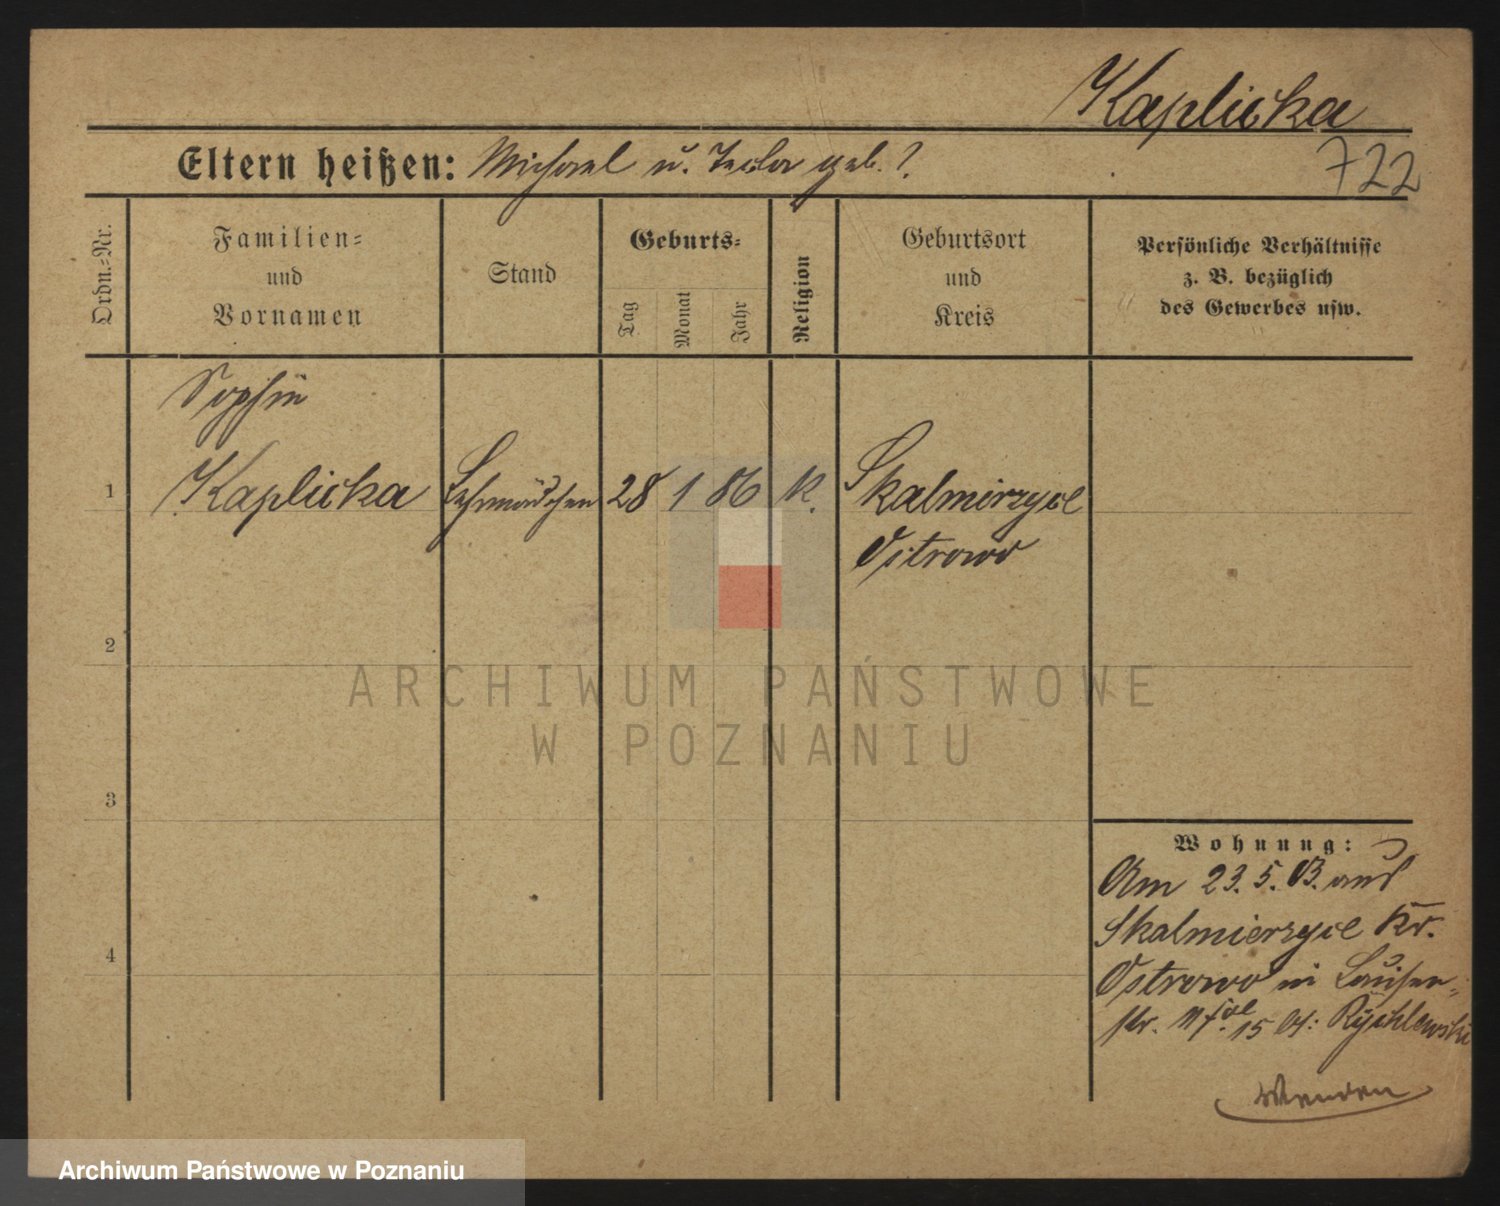 Kaplicka
722
Eltern heißen: Michael u. Tecla geb. ?
Ordn.-Nr.
Familien-
und
Vornamen
Stand
Geburts-
Tag
Monat
Jahr
Religion
Geburtsort
und
Kreis
Persönliche Verhältnisse
z. B. bezüglich
des Gewerbes usw.
Sophie
1 Kaplicka Lehrmädchen 28 1 86 K. Skalmirzyce
Ostrowo
2
3
4
ARCHIWUM PAŃSTWOWE
W POZNANIU
Wohnung:
Am 23.5.03. aus
Skalmierzyce Kr.
Ostrowo in Luisen-
str. 15 Rychlewski
Wenden
Archiwum Państwowe w Poznaniu